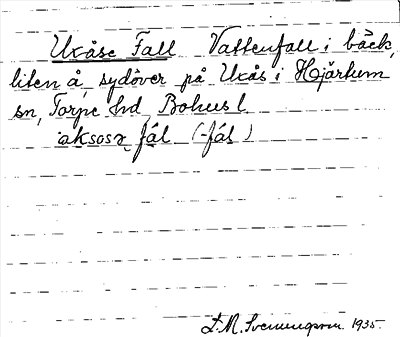 Uxåse Fall Vattenfall i bäck,
liten å, sydöver på Uxås i Hjärtum
sn, Torpe hd, Bohus l.
aksosə fál (-fál)
D.M. Svenungsson. 1935.